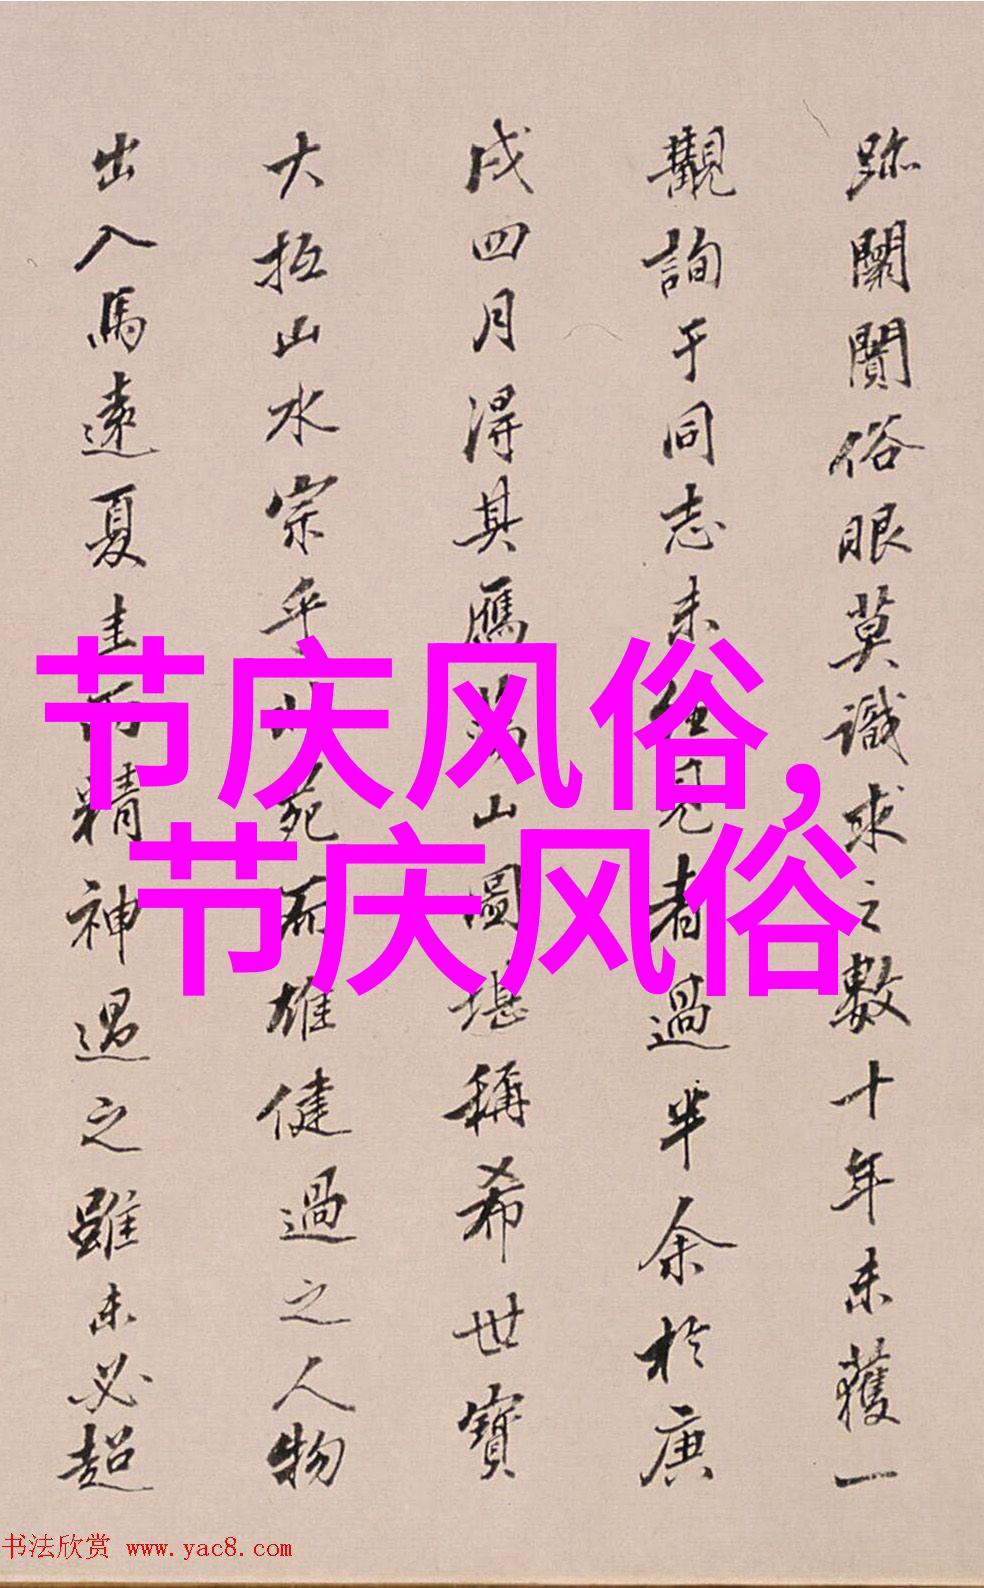 跡闤闠俗眼莫識求之數十年未獲一
觀詢于同志未見者過半余於庚
戌四月得其鴈蕩山圖堪稱希世寶
大抵山水宗乎北苑而雄健過之人物
出入馬遠夏圭而精神過之雖未必超
节庆风俗,
节庆风俗
书法欣赏 www.yac8.com